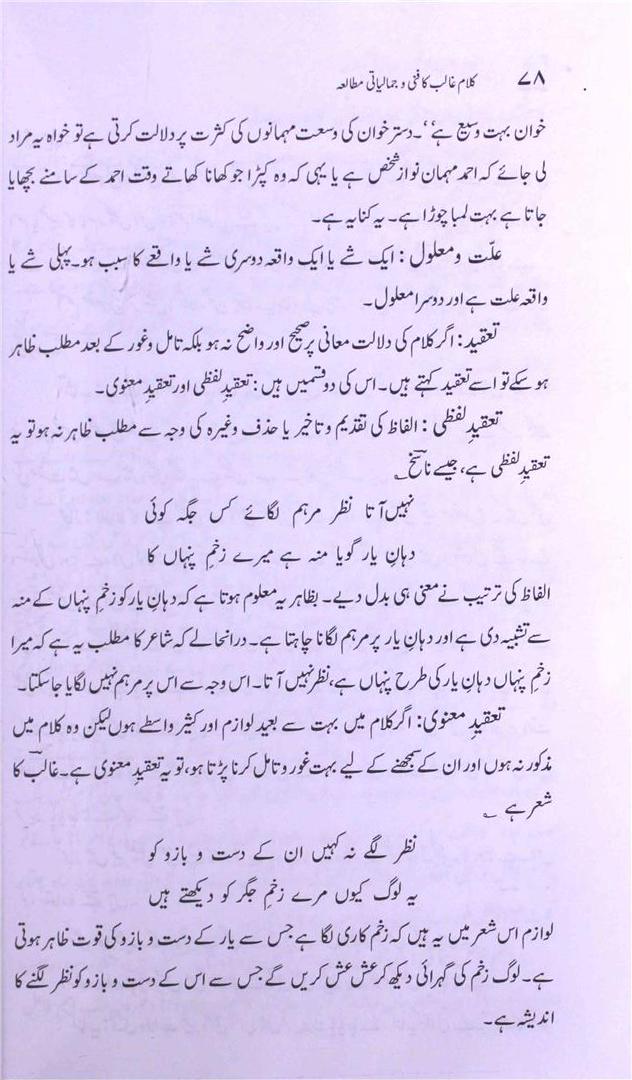 ۷۸ کلام غالب کا فنی و جمالیاتی مطالعہ
خوان بہت وسیع ہے‘‘۔ دستر خوان کی وسعت مہمانوں کی کثرت پر دلالت کرتی ہے تو خواہ یہ مراد
لی جائے کہ احمد مہمان نواز شخص ہے یا یہی کہ وہ کپڑا جو کھانا کھاتے وقت احمد کے سامنے بچھایا
جاتا ہے بہت لمبا چوڑا ہے۔ یہ کنایہ ہے۔
علّت و معلول : ایک شے یا ایک واقعہ دوسری شے یا واقعے کا سبب ہو۔ پہلی شے یا
واقعہ علت ہے اور دوسرا معلول۔
تعقید : اگر کلام کی دلالت معانی پر صحیح اور واضح نہ ہو بلکہ تامل و غور کے بعد مطلب ظاہر
ہو سکے تو اسے تعقید کہتے ہیں۔ اس کی دو قسمیں ہیں : تعقیدِ لفظی اور تعقیدِ معنوی۔
تعقیدِ لفظی : الفاظ کی تقدیم و تاخیر یا حذف وغیرہ کی وجہ سے مطلب ظاہر نہ ہو تو یہ
تعقیدِ لفظی ہے، جیسے ناسخؔ ؎
نہیں آتا نظر مرہم لگائے کس جگہ کوئی
دہانِ یار گویا منہ ہے میرے زخمِ پنہاں کا
الفاظ کی ترتیب نے معنی ہی بدل دیے۔ بظاہر یہ معلوم ہوتا ہے کہ دہانِ یار کو زخمِ پنہاں کے منہ
سے تشبیہ دی ہے اور دہانِ یار پر مرہم لگانا چاہتا ہے۔ درانحالے کہ شاعر کا مطلب یہ ہے کہ میرا
زخمِ پنہاں دہانِ یار کی طرح پنہاں ہے، نظر نہیں آتا۔ اس وجہ سے اس پر مرہم نہیں لگایا جا سکتا۔
تعقیدِ معنوی : اگر کلام میں بہت سے بعید لوازم اور کثیر واسطے ہوں لیکن وہ کلام میں
مذکور نہ ہوں اور ان کے سمجھنے کے لیے بہت غور و تامل کرنا پڑتا ہو، تو یہ تعقیدِ معنوی ہے۔ غالبؔ کا
شعر ہے ؎
نظر لگے نہ کہیں ان کے دست و بازو کو
یہ لوگ کیوں مرے زخمِ جگر کو دیکھتے ہیں
لوازم اس شعر میں یہ ہیں کہ زخم کاری لگا ہے جس سے یار کے دست و بازو کی قوت ظاہر ہوتی
ہے۔ لوگ زخم کی گہرائی دیکھ کر عش عش کریں گے جس سے اس کے دست و بازو کو نظر لگنے کا
اندیشہ ہے۔